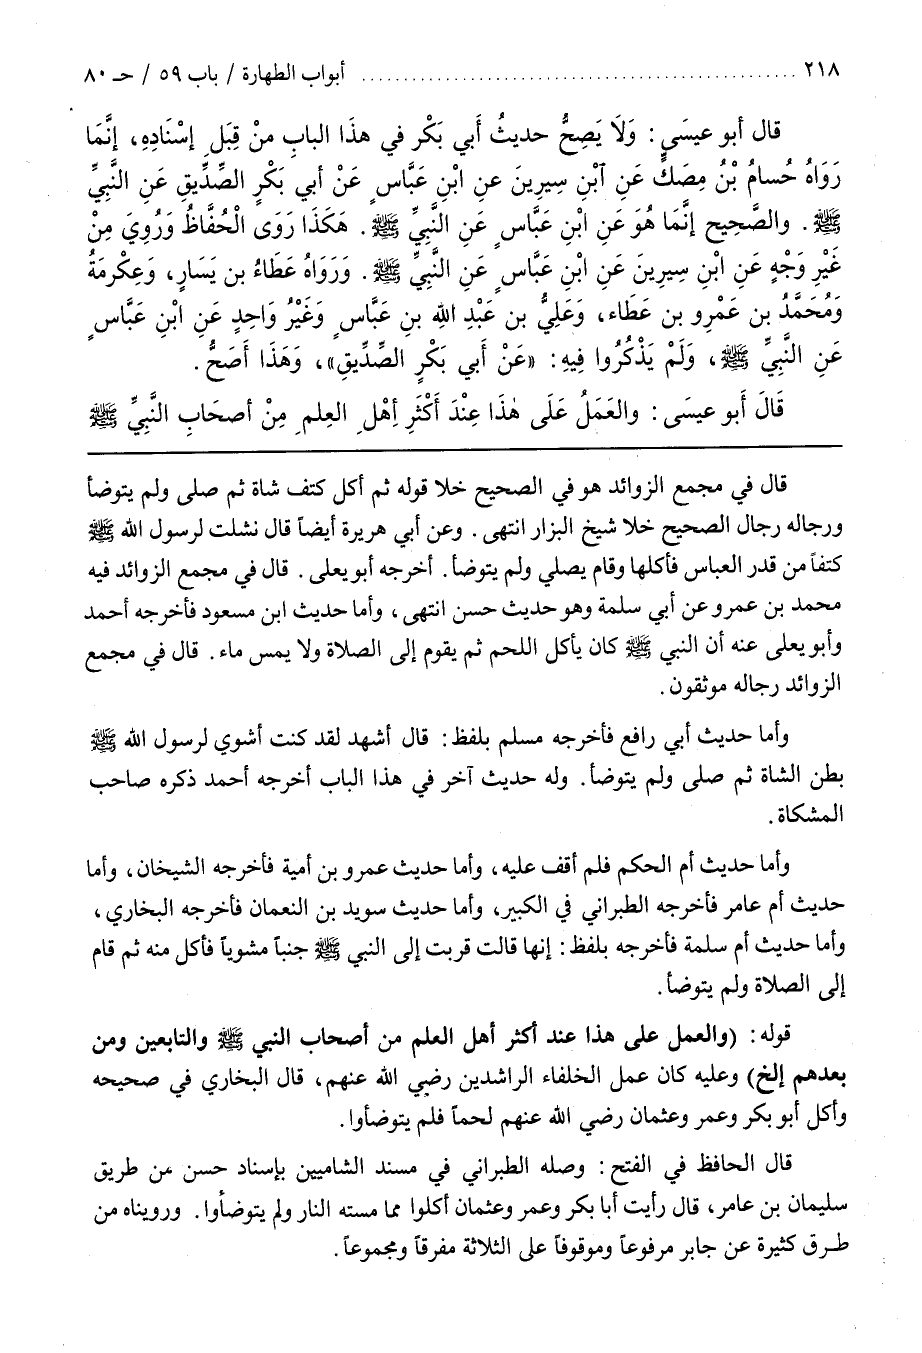 ٢١٨ ........................................ أبواب الطهارة / باب ٥٩ / حـ ٨٠
قال أبو عيسَى: وَلَا يَصِحُّ حديثُ أَبي بَكْرٍ في هذَا البابِ منْ قِبَلِ إسْنَادِهِ، إنَّمَا
رَوَاهُ حُسامُ بْنُ مِصَكٍّ عَنِ ابْنِ سِيرِينَ عنِ ابْنِ عَبَّاسٍ عَنْ أبي بَكْرٍ الصِّدِّيقِ عَنِ النَّبِيِّ
ﷺ. والصَّحِيح إنَّمَا هُوَ عَنِ ابْنِ عَبَّاسٍ عَنِ النَّبِيِّ ﷺ. هَكَذَا رَوَى الْحُفَّاظُ وَرُوِيَ مِنْ
غَيْرِ وَجْهٍ عَنِ ابْنِ سِيرِينَ عَنِ ابْنِ عَبَّاسٍ عَنِ النَّبِيِّ ﷺ. وَرَوَاهُ عَطَاءُ بن يَسَارٍ، وَعِكْرِمَةُ
وَمُحَمَّدُ بن عَمْرِو بن عَطَاء، وَعَلِيُّ بن عَبْدِ اللهِ بنِ عَبَّاسٍ وَغَيْرُ وَاحِدٍ عَنِ ابْنِ عَبَّاسٍ
عَنِ النَّبِيِّ ﷺ، وَلَمْ يَذْكُرُوا فِيهِ: «عَنْ أَبي بَكْرٍ الصِّدِّيقِ»، وَهَذَا أَصَحُّ.
قَالَ أَبو عيسَى: والعَمَلُ عَلَى هٰذَا عِنْدَ أَكْثَرِ أهْلِ العِلمِ مِنْ أصحَابِ النَّبيِّ ﷺ
قال في مجمع الزوائد هو في الصحيح خلا قوله ثم أكل كتف شاة ثم صلى ولم يتوضأ
ورجاله رجال الصحيح خلا شيخ البزار انتهى. وعن أبي هريرة أيضاً قال نشلت لرسول الله ﷺ
كتفاً من قدر العباس فأكلها وقام يصلي ولم يتوضأ. أخرجه أبو يعلى. قال في مجمع الزوائد فيه
محمد بن عمرو عن أبي سلمة وهو حديث حسن انتهى، وأما حديث ابن مسعود فأخرجه أحمد
وأبو يعلى عنه أن النبي ﷺ كان يأكل اللحم ثم يقوم إلى الصلاة ولا يمس ماء. قال في مجمع
الزوائد رجاله موثقون.
وأما حديث أبي رافع فأخرجه مسلم بلفظ: قال أشهد لقد كنت أشوي لرسول الله ﷺ
بطن الشاة ثم صلى ولم يتوضأ. وله حديث آخر في هذا الباب أخرجه أحمد ذكره صاحب
المشكاة.
وأما حديث أم الحكم فلم أقف عليه، وأما حديث عمرو بن أمية فأخرجه الشيخان، وأما
حديث أم عامر فأخرجه الطبراني في الكبير، وأما حديث سويد بن النعمان فأخرجه البخاري،
وأما حديث أم سلمة فأخرجه بلفظ: إنها قالت قربت إلى النبي ﷺ جنباً مشوياً فأكل منه ثم قام
إلى الصلاة ولم يتوضأ.
قوله: (والعمل على هذا عند أكثر أهل العلم من أصحاب النبي ﷺ والتابعين ومن
بعدهم إلخ) وعليه كان عمل الخلفاء الراشدين رضي الله عنهم، قال البخاري في صحيحه
وأكل أبو بكر وعمر وعثمان رضي الله عنهم لحماً فلم يتوضأوا.
قال الحافظ في الفتح: وصله الطبراني في مسند الشاميين بإسناد حسن من طريق
سليمان بن عامر، قال رأيت أبا بكر وعمر وعثمان أكلوا مما مسته النار ولم يتوضأوا. ورويناه من
طرق كثيرة عن جابر مرفوعاً وموقوفاً على الثلاثة مفرقاً ومجموعاً.